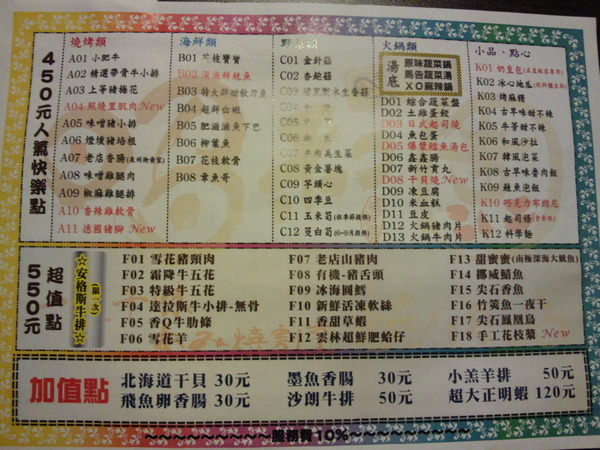 450元人氣快樂點
燒烤類
A01 小肥牛
A02 精選帶骨牛小排
A03 上等豬梅花
A04 風燒里肌肉New
A05 味噌豬小排
A06 煙燻豬培根
A07 老店香腸
A08 味噌雞腿肉
A09 椒麻雞腿肉
A10 香辣雞軟骨
A11 德國豬腳 New
海鮮類
B01 花枝寶寶
B02 深海鮮魷魚
B03 特大鮮甜敘刀魚
B04 超鮮白蝦
B05 肥滋滋魚下巴
B06 柳葉魚
B07 花枝軟骨
B08 章魚哥
C01 金針菇
C02 杏鮑菇
C08 黃金薯塊
C09 芋頭心
C10 四季豆
C11 玉米筍
C12 茭白筍(6~9月提供)
火鍋類
湯底
原味蔬菜鍋
馬告蔬菜湯
XO麻辣鍋
D01 綜合蔬菜盤
D02 土雞蛋餃
D03 日式起司燒
D04 魚包蛋
D05 爆漿鱈魚湯包
D06 鑫鑫腸
D07 新竹貢丸
D08 干貝燒New
D09 凍豆腐
D10 米血糕
D11 豆皮
D12 火鍋豬肉片
D13 火鍋牛肉片
小品、點心
K01 奶皇包
K02 冰心地瓜
K03 烤麻糬
K04 古早味甜不辣
K05 牛蒡甜不辣
K06 和風沙拉
K07 韓風泡菜
K08 古早味魯肉飯
K09 鮭魚泡飯
K10 巧克力布朗尼
K11 起司條
K12 科學麵
550元超值點
☆安格斯牛排☆
(限一次)
F01 雪花豬頸肉
F02 霜降牛五花
F03 特級牛五花
F04 達拉斯牛小排-無骨
F05 香Q牛肋條
F06 雪花羊
F07 老店山豬肉
F08 有機-豬舌頭
F09 冰海圓鱈
F10 新鮮活凍軟絲
F11 香甜草蝦
F12 雲林超鮮肥蛤仔
F13 甜蜜蜜(南極深海大魷魚)
F14 挪威鯖魚
F15 尖石香魚
F16 竹筴魚一夜干
F17 尖石鳳凰鳥
F18 手工花枝漿 New
加值點
北海道干貝 30元
墨魚香腸 30元
小羔羊排 50元
飛魚卵香腸 30元
沙朗牛排 50元
超大正明蝦 120元
服務費10%